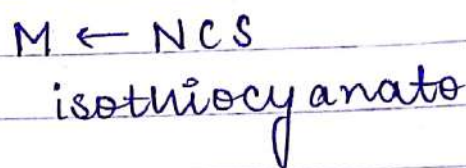 M ← NCS
isothiocyanato